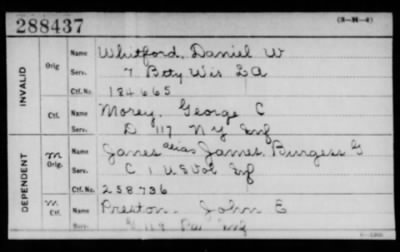 288437
(3-M-4)
INVALID
Orig
Name Whitford, Daniel W
Serv. 7 Btty Wis LA
Ctf. No. 184665
Ctf.
Name Morey, George C
Serv. D 117 N Y Inf
DEPENDENT
m
Orig.
Name Janes alias James, Burgess G
Serv. C 1 U S Vol Inf
Ctf. No. 258736
m
Ctf.
Name Preston, John E
118 Inf